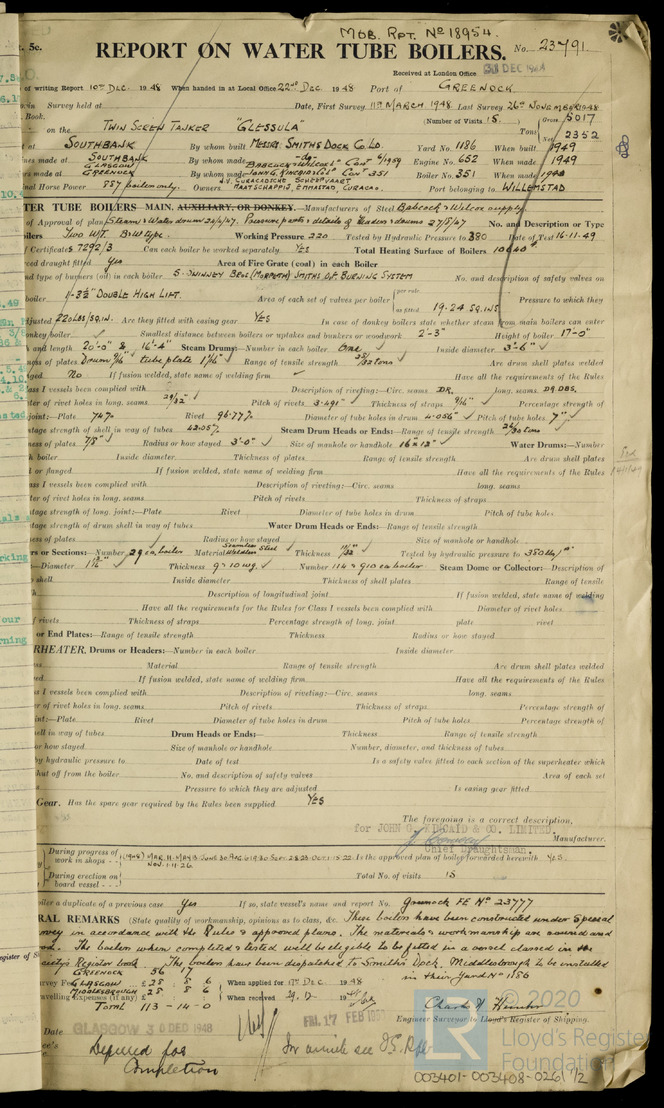 MOB. RPT. No 18954.
t. 5c.
REPORT ON WATER TUBE BOILERS.
No. 23791
Received at London Office 31 DEC 1948
of writing Report 10th DEC. 1948 When handed in at Local Office 22nd DEC 1948 Port of GREENOCK
Survey held at Date, First Survey 11th MARCH 1948 Last Survey 26th NOVEMBER 1948
Book.
on the TWIN SCREW TANKER "GLESSULA" (Number of Visits 15) Gross 5017
Tons Net 2352
at SOUTHBANK By whom built MESSRS. SMITHS DOCK CO. LD. Yard No. 1186 When built 1949
nes made at SOUTHBANK By whom made -do- Engine No. 652 When made 1949
GLASGOW BABCOCK & WILCOX LD
rs made at GREENOCK By whom made JOHN G. KINCAID & CO LD Con No 351 Boiler No. 351 When made 1948
nal Horse Power 887 boilers only. Owners MAATSCHAPPIJ, EMMASTAD, CURACAO. Port belonging to WILLEMSTAD
TER TUBE BOILERS—MAIN, AUXILIARY, OR DONKEY.—Manufacturers of Steel Babcock & Wilcox supply.
of Approval of plan Steam & Water drums 22/4/47. Pressure parts & details of headers & drums 27/5/47 No. and Description or Type
oilers Two W.T. B&W type. Working Pressure 220 Tested by Hydraulic Pressure to 380 Date of Test 16-11-49
Certificate 57292/3 Can each boiler be worked separately YES Total Heating Surface of Boilers 10640
ced draught fitted Yes Area of Fire Grate (coal) in each Boiler
nd type of burners (oil) in each boiler 5. SWINNEY BROS (MORPETH) SMITHS O.F. BURNING SYSTEM No. and description of safety valves on
boiler 1-3½" DOUBLE HIGH LIFT. Area of each set of valves per boiler per rule as fitted 19.24 SQ.INS. Pressure to which they
djusted 220 LBS/SQ.IN. Are they fitted with easing gear YES In case of donkey boilers state whether steam from main boilers can enter
donkey boiler Smallest distance between boilers or uptakes and bunkers or woodwork 2'-3" Height of boiler 17'-0"
and length 20'-0" & 16'-4" Steam Drums:—Number in each boiler One Inside diameter 3'-6"
ness of plates Drum 11/16" tube plate 1 1/16" Range of tensile strength 28/32 tons Are drum shell plates welded
nged No If fusion welded, state name of welding firm Have all the requirements of the Rules
lass I vessels been complied with Description of riveting:—Circ. seams DR. long. seams D9.DBS.
ter of rivet holes in long. seams 29/32" Pitch of rivets 3.491" Thickness of straps 9/16" Percentage strength of
joint:—Plate 74% Rivet 96.77% Diameter of tube holes in drum 4.056" Pitch of tube holes 7"
tage strength of shell in way of tubes 42.05% Steam Drum Heads or Ends:—Range of tensile strength 26/30 tons
ness of plates 7/8" Radius or how stayed 3'-0" Size of manhole or handhole 16"x12" Water Drums:—Number
h boiler Inside diameter. Thickness of plates. Range of tensile strength Are drum shell plates
or flanged. If fusion welded, state name of welding firm Have all the requirements of the Rules
ass I vessels been complied with. Description of riveting:—Circ. seams long. seams.
ter of rivet holes in long. seams Pitch of rivets. Thickness of straps
tage strength of long. joint:—Plate Rivet Diameter of tube holes in drum Pitch of tube holes
tage strength of drum shell in way of tubes Water Drum Heads or Ends:—Range of tensile strength
ess of plates Radius or how stayed Size of manhole or handhole
rs or Sections:—Number 29 ea. boiler Material Seamless Steel Thickness 11/32" Tested by hydraulic pressure to 380 lb/□"
—Diameter Thickness 9 & 10 wg. Number 114 & 910 ea boiler Steam Dome or Collector:—Description of
shell Inside diameter Thickness of shell plates Range of tensile
th Description of longitudinal joint If fusion welded, state name of welding
Have all the requirements for the Rules for Class I vessels been complied with Diameter of rivet holes
f rivets Thickness of straps Percentage strength of long. joint plate rivet
or End Plates:—Range of tensile strength Thickness Radius or how stayed
RHEATER. Drums or Headers:—Number in each boiler Inside diameter
ess Material Range of tensile strength Are drum shell plates welded
ed If fusion welded, state name of welding firm Have all the requirements of the Rules
s I vessels been complied with Description of riveting:—Circ. seams long. seams.
er of rivet holes in long. seams Pitch of rivets Thickness of straps. Percentage strength of
int:—Plate Rivet Diameter of tube holes in drum Pitch of tube holes Percentage strength of
ell in way of tubes Drum Heads or Ends:— Thickness Range of tensile strength
or how stayed Size of manhole or handhole Number, diameter, and thickness of tubes
by hydraulic pressure to Date of test Is a safety valve fitted to each section of the superheater which
hut off from the boiler No. and description of safety valves Area of each set
Pressure to which they are adjusted Is easing gear fitted
Gear. Has the spare gear required by the Rules been supplied YES
The foregoing is a correct description,
for JOHN G. KINCAID & CO. LIMITED.
Manufacturer.
Chief Draughtsman.
During progress of work in shops - - (1948) MAR. 11. MAY 13. JUNE 30. AUG. 6.19.30. SEPT. 2.8.23. OCT. 1.15.22. NOV. 1.11.26. Is the approved plan of boiler forwarded herewith YES.
During erection on board vessel - - - Total No. of visits 15
oiler a duplicate of a previous case Yes If so, state vessel's name and report No. Greenock FE No 23777
RAL REMARKS (State quality of workmanship, opinions as to class, &c. These boilers have been constructed under special
vey in accordance with the Rules & approved plans. The materials & workmanship are sound and
good. The boilers when completed & tested will be eligible to be fitted in a vessel classed in the
ciety's Register book. The boilers have been despatched to Smith's Dock, Middlesbrough to be installed
in their Yard No 1186
GREENOCK 56 17
rvey Fee GLASGOW £28 : 8 : 6 When applied for 17th DEC. 1948
MIDDLESBROUGH 28 8 6
avelling Expenses (if any) £ When received
TOTAL 113-14-0
Engineer Surveyor to Lloyd's Register of Shipping.
Date GLASGOW 30 DEC 1948
FRI. 17 FEB
Deferred for
Completion
For minute see
© 2020
Lloyd's Register
Foundation
003401-003408-0261 1/2